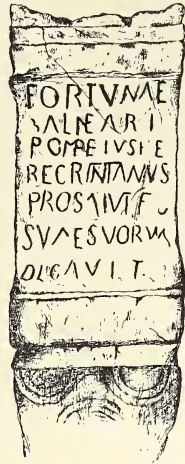 FORTVNAE
BALNEARI
POMPEIVSPE
RECRINTANVS
PROSALVTE
SVAESVORVM
DICAVIT